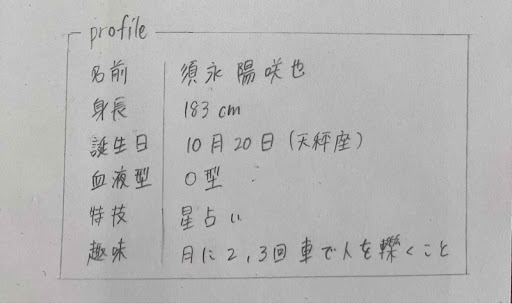 profile
名前 須永陽咲也
身長 183cm
誕生日 10月20日(天秤座)
血液型 O型
特技 星占い
趣味 月に2,3回車で人を轢くこと